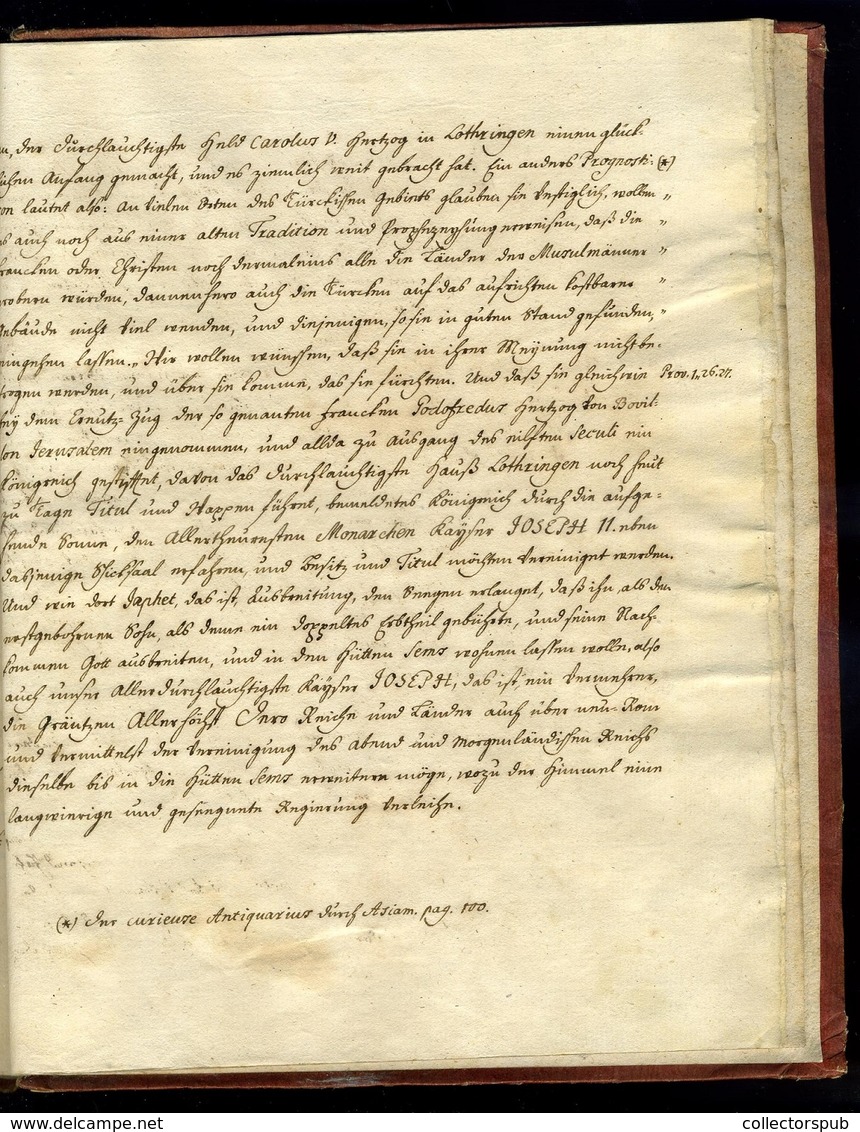 der Durchlauchtigste Held Carolus V. Hertzog in Lothringen einen glück-
Anfang gemacht, und es ziemlich weit gebracht hat. Ein anders Prognosti: (*)
lautet also: An vielen Orten des Türckissen Gebiets glauben sie vestiglich, wollen „
auch noch aus einer alten Tradition und Prophezeyhung erweisen, daß die „
rancken oder Christen noch dermaleins alle die Länder der Musulmänner „
robern würden, dannenhero auch die Türcken auf das aufrichten kostbarer „
ebäude nicht viel wenden, und diejenigen, so sie in guten Stand gefunden, „
eingehen lassen. „ Wir wollen wünssen, daß sie in ihrer Meynung nicht be-
trogen werden, und über sie komme, das sie fürchten. Und daß sie gleich wie Prov. 1, 26. 27.
bey dem Creutz-Zug der so genanten Francken Godofredus Hertzog von Bovil-
on Jerusalem eingenommen, und allda zu Ausgang des eilften Seculi ein
Königreich gestifftet, davon das Durchlauchtigste Hauß Lothringen noch heut
zu Tage Titul und Wappen führet, bemeldetes Königreich durch die aufge-
hende Sonne, den Allertheuresten Monarchen Kayser JOSEPH II. eben
dasjenige Schicksaal erfahren, und Besitz und Titul möchten vereiniget werden.
Und wie dort Japhet, das ist, Ausbreitung, den Seegen erlanget, daß ihn, als den
erstgebohrnen Sohn, als deme ein doppeltes Erbtheil gebührte, und seine Nach-
kommen Gott ausbreiten, und in den Hütten Sems wohnen lassen wolle, also
auch unser Allerdurchlauchtigste Kayser JOSEPH, das ist, ein Vermehrer,
die Gräntzen Allerhöchst Dero Reiche und Länder auch über neu-Rom
und vermittelst der Vereinigung des Abend und Morgenländissen Reichs
dieselbe bis in die Hütten Sems erweitern möge, wozu der Himmel eine
langwierige und geseegnete Regierung verleihe.
(*) Der curieuse Antiquarius durch Asiam. pag. 100.
www.delcampe.net
collectorspub